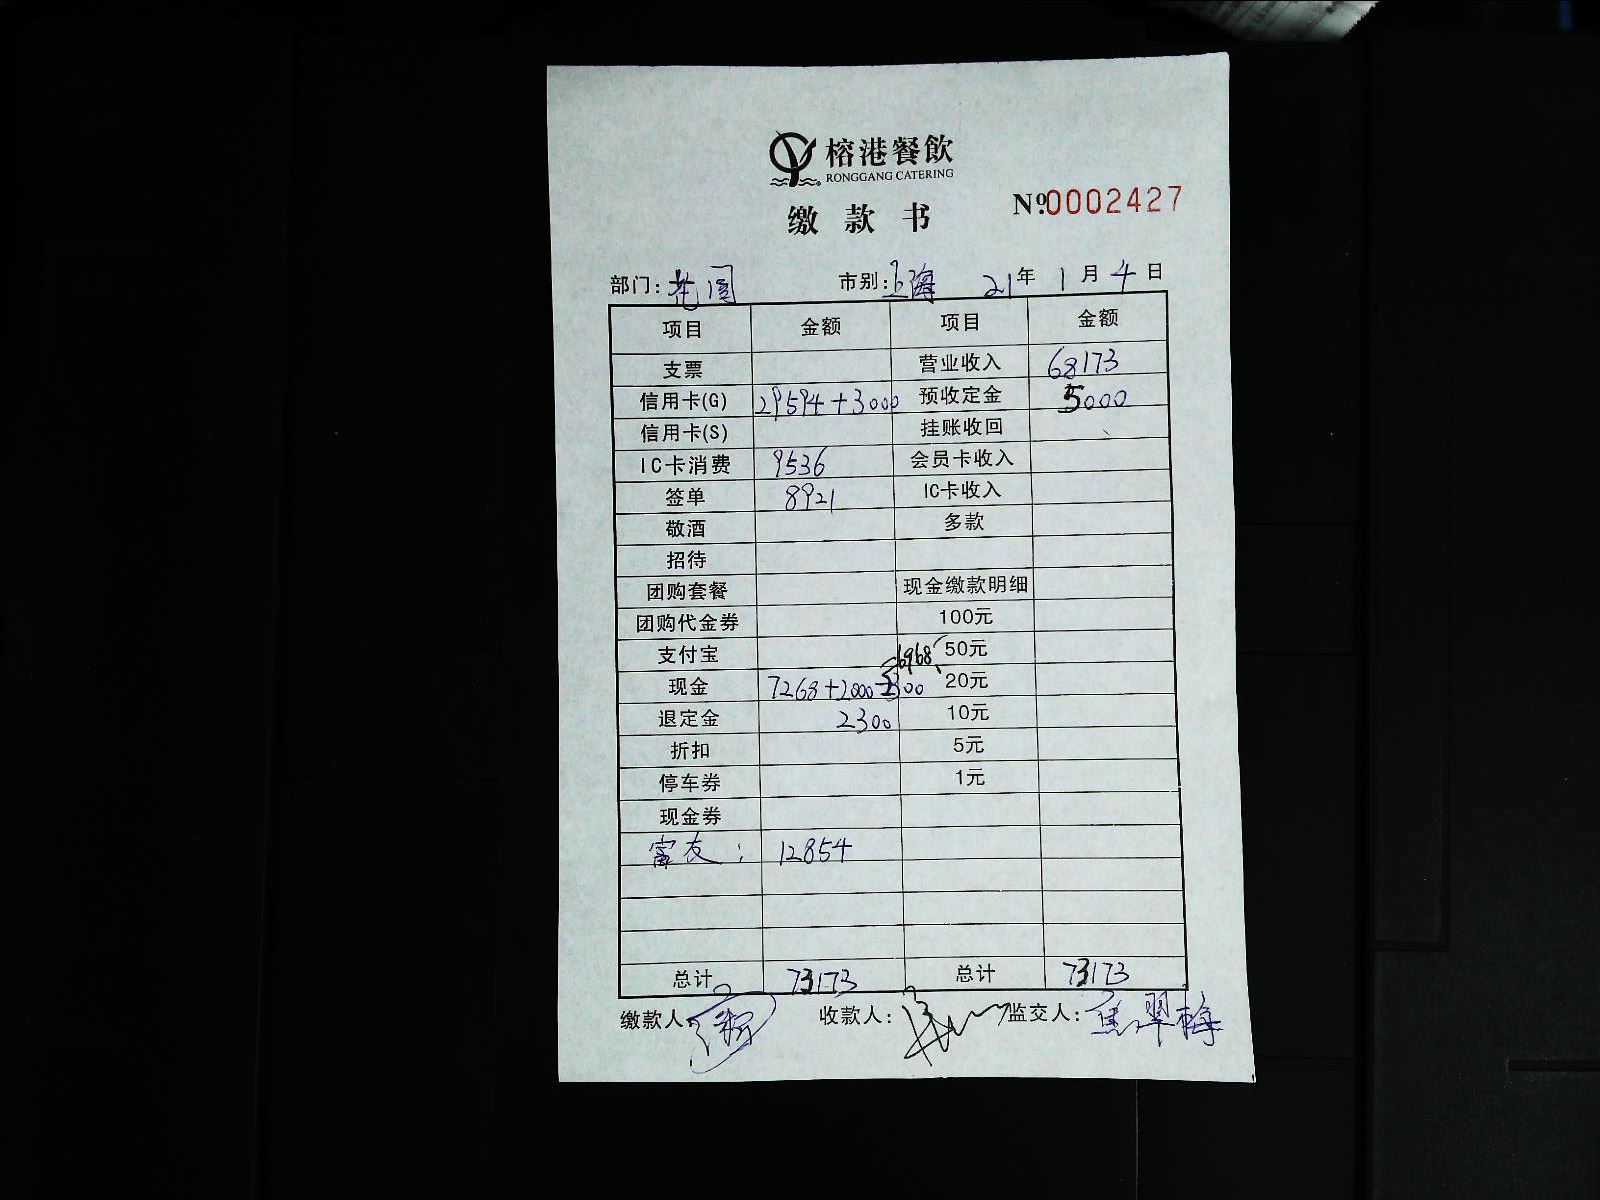 榕港餐飲
RONGGANG CATERING
缴款书
Nº.0002427
部门: 花园 市别: 上海 21年 1月 4日
项目 金额 项目 金额
支票 营业收入 68173
信用卡(G) 29594+3000 预收定金 5000
信用卡(S) 挂账收回
IC卡消费 9536 会员卡收入
签单 8921 IC卡收入
敬酒 多款
招待
团购套餐 现金缴款明细
团购代金券 100元
支付宝 50元
=6968
现金 7268+2000-2300 20元
退定金 2300 10元
折扣 5元
停车券 1元
现金券
富友: 12854
总计 73173 总计 73173
缴款人: 收款人: 监交人: 焦翠梅